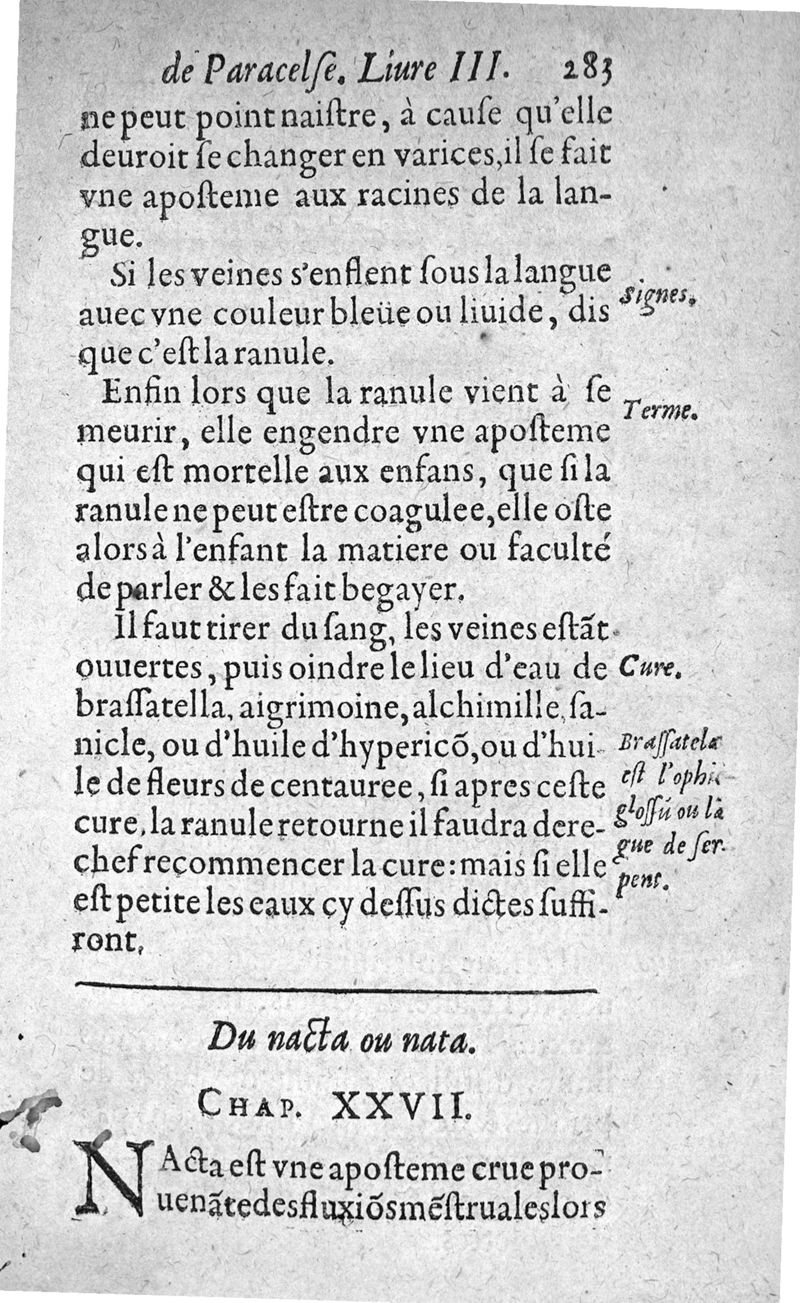 de Paracelſe. Liure III. 283
ne peut point naiſtre, à cauſe qu'elle
deuroit ſe changer en varices, il ſe fait
vne apoſteme aux racines de la lan-
gue.
Si les veines s'enflent ſous la langue
auec vne couleur bleüe ou liuide, dis
que c'eſt la ranule.
Signes.
Enfin lors que la ranule vient à ſe
meurir, elle engendre vne apoſteme
qui eſt mortelle aux enfans, que ſi la
ranule ne peut eſtre coagulee, elle oſte
alors à l'enfant la matiere ou faculté
de parler & les fait begayer.
Terme.
Il faut tirer du ſang, les veines eſtãt
ouuertes, puis oindre le lieu d'eau de
braſſatella, aigrimoine, alchimille, ſa-
nicle, ou d'huile d'hypericõ, ou d'hui-
le de fleurs de centauree, ſi apres ceſte
cure, la ranule retourne il faudra dere-
chef recommencer la cure: mais ſi elle
eſt petite les eaux cy deſſus dictes ſuffi-
ront.
Cure.
Braſſatela
eſt l'ophi
gloſſú ou lã
gue de ſer-
pent.
Du nacta ou nata.
CHAP. XXVII.
NActa eſt vne apoſteme crue pro-
uenãte des fluxiõs mẽſtruales lors